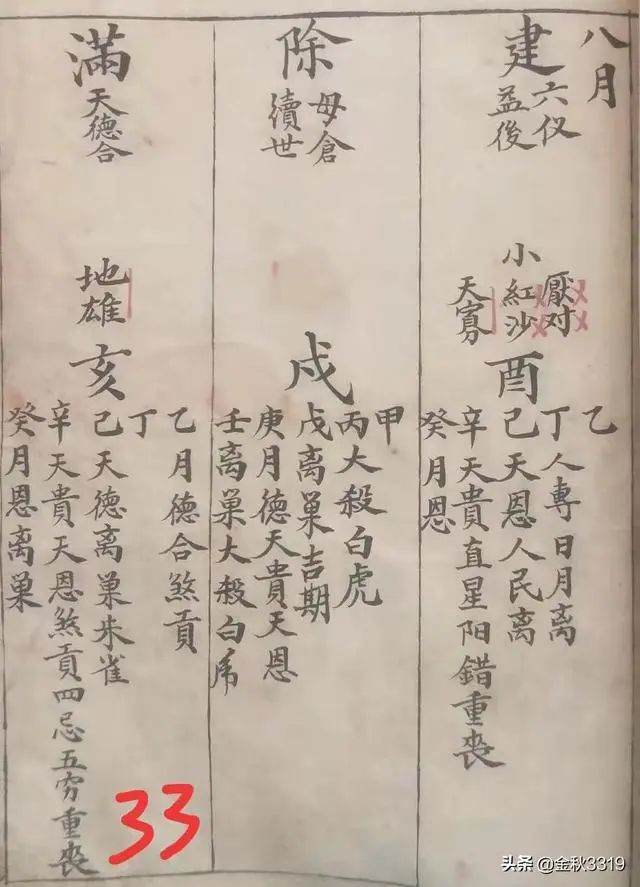 八月
建
六仪
益後
小
厭对
紅沙
天寡
酉
乙
丁人專日月离
己天恩人民离
辛天貴直星阳錯重喪
癸月恩
除
母倉
續世
戌
甲
丙大殺白虎
戊离巢吉期
庚月德天貴天恩
壬离巢大殺白虎
滿
天德合
地雄
亥
乙月德合煞貢
丁
己天德离巢朱雀
辛天貴天恩煞貢四忌五穷重喪
癸月恩离巢
33
头条 @金秋3319